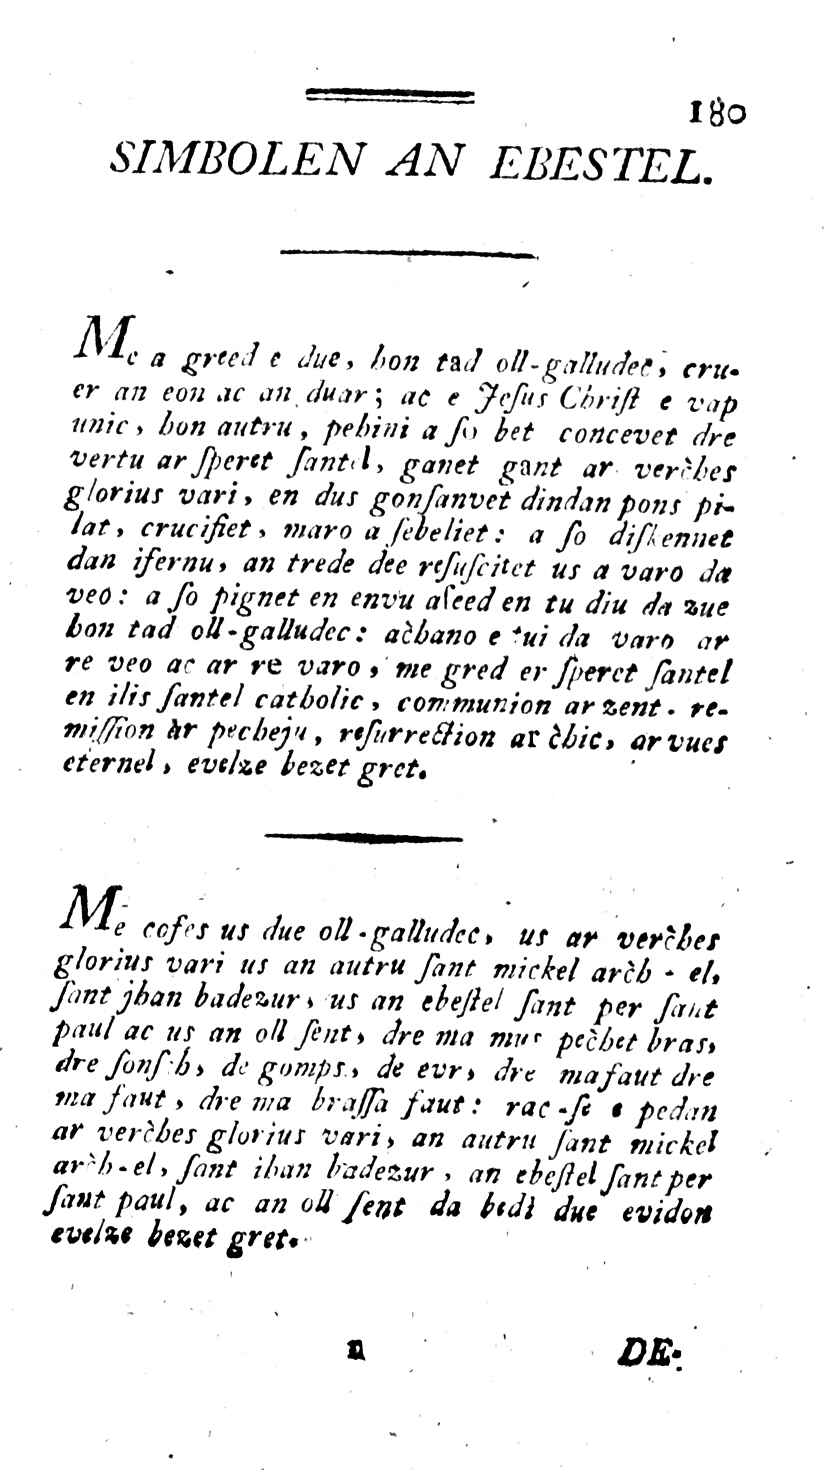 180
SIMBOLEN AN EBESTEL.
Me a greed e due, hon tad oll-galludec, cru-
er an eon ac an duar; ac e Jeſus Chriſt e vap
unic, hon autru, pehini a ſo bet concevet dre
vertu ar ſperet ſantel, ganet gant ar verc̀hes
glorius vari, en dus gonſanvet dindan pons pi-
lat, crucifiet, maro a ſebeliet: a ſo diſkennet
dan ifernu, an trede dee reſuſcitet us a varo da
veo: a ſo pignet en envu aſeed en tu diu da zue
hon tad oll-galludec: ac̀hano e tui da varn ar
re veo ac ar re varo, me gred er ſperet ſantel
en ilis ſantel catholic, communion ar zent. re-
miſſion àr pecheju, reſurrection ar c̀hic, ar vues
eternel, evelze bezet gret.
Me cofes us due oll-galludec, us ar verc̀hes
glorius vari us an autru ſant mickel arc̀h-el,
ſant jhan badezur, us an ebeſtel ſant per ſant
paul ac us an oll ſent, dre ma mus pec̀het bras,
dre ſonſch, de gomps, de evr, dre ma faut dre
ma faut, dre ma braſſa faut: rac-ſe e pedan
ar verc̀hes glorius vari, an autru ſant mickel
arc̀h-el, ſant ihan badezur, an ebeſtel ſant per
ſant paul, ac an oll ſent da bedi due evidon
evelze bezet gret.
n DE-